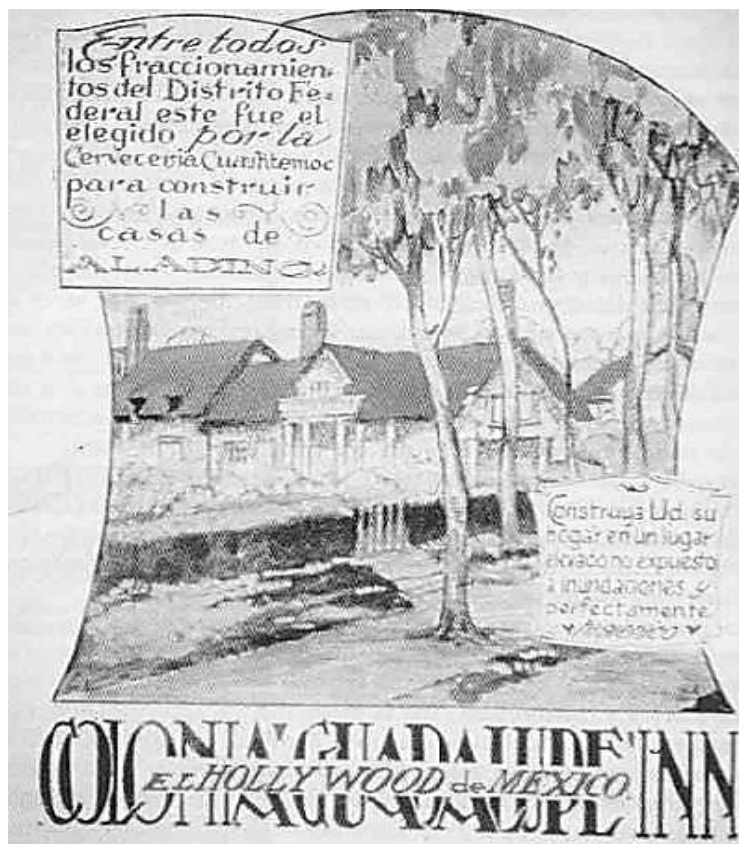 Entre todos
los fraccionamien-
tos del Distrito Fe-
deral este fue el
elegido por la
Cerveceria Cuauhtemoc
para construir
las
casas de
ALADINO.
Construya Ud. su
hogar en un lugar
elevado no expuesto
a inundaciones y
perfectamente
COLONIA GUADALUPE INN
EL HOLLYWOOD de MEXICO.